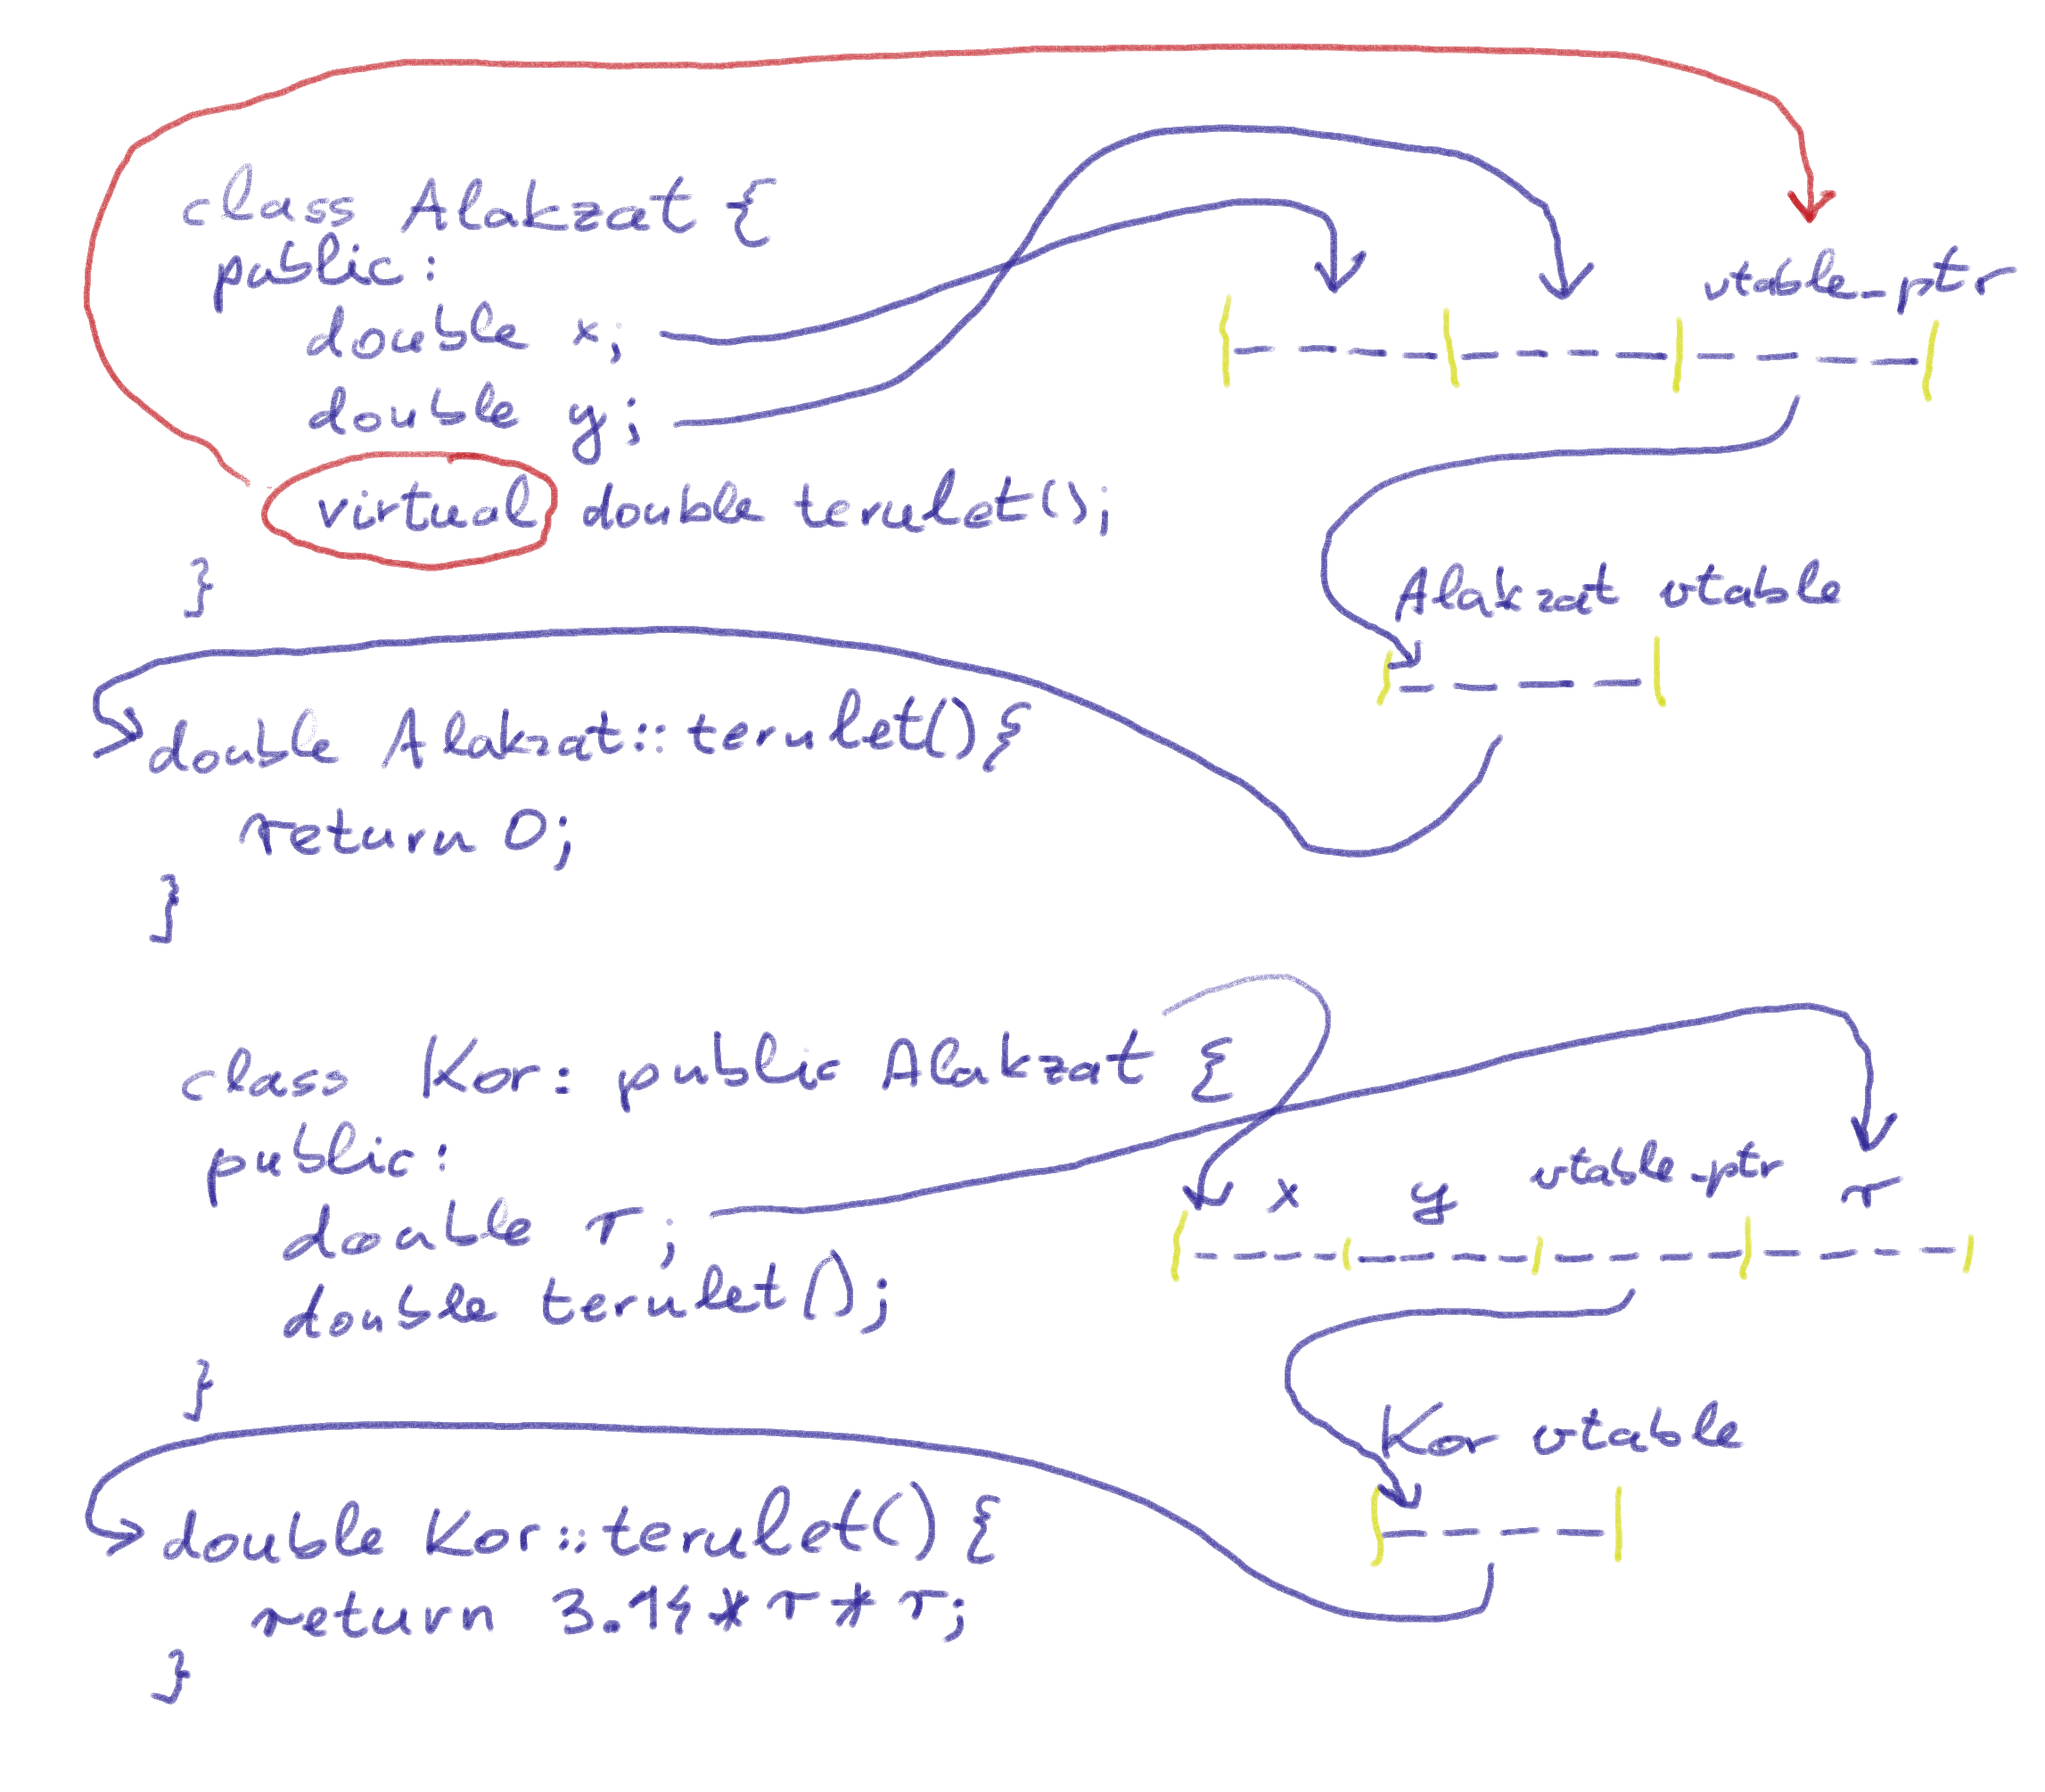 class Alakzat {
public:
double x;
double y;
virtual double terulet();
}
vtable_ptr
Alakzat vtable
double Alakzat::terulet(){
return 0;
}
class Kor: public Alakzat {
public:
double r;
double terulet();
}
x y vtable_ptr r
Kor vtable
double Kor::terulet() {
return 3.14*r*r;
}